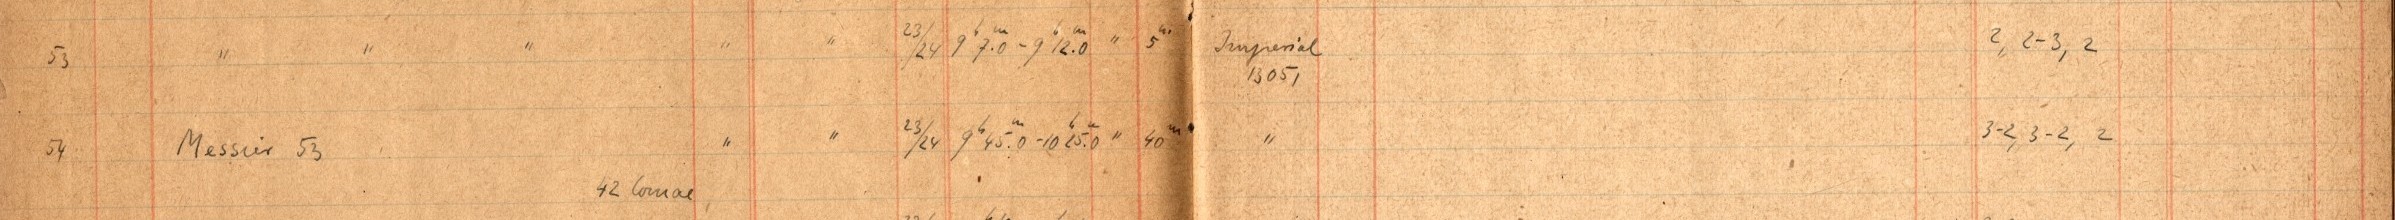 53 " " " " " 23/24 9h 7m.0 - 9h 12m.0 " 5m Imperial 2, 2-3, 2
13051
54 Messier 53 " " 23/24 9h 45m.0 - 10h 25m.0 " 40m " 3-2, 3-2, 2
42 Comae